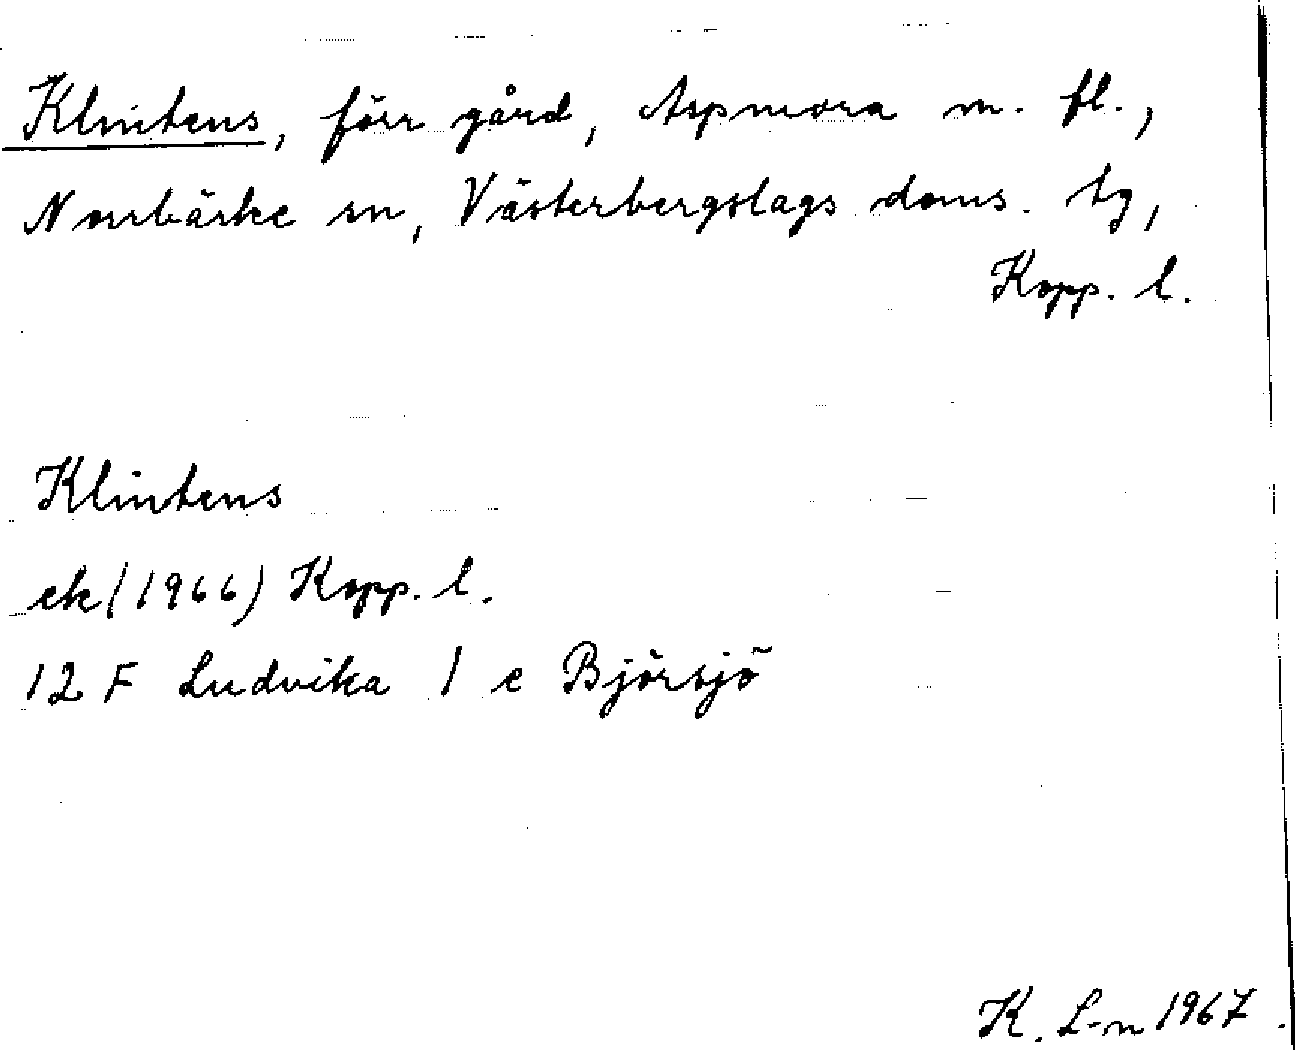 Klintens, förr gård, Aspmora m. fl.,
Norrbärke sn, Västerbergslags doms. tg,
Kopp. l.
Klintens
ek (1966) Kopp. l.
12 F Ludvika 1 e Björsjö
K. L-n 1967.